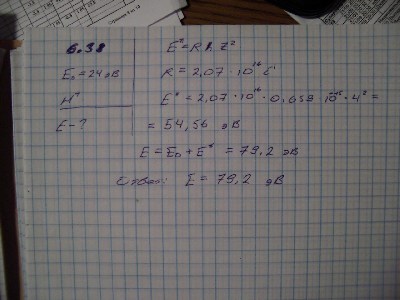 6.38
E₀ = 24 эВ
E - ?
E* = R ħ Z²
R = 2,07 · 10¹⁶ c⁻¹
E* = 2,07 · 10¹⁶ · 0,659 · 10⁻¹⁵ · 4² =
= 54,56 эВ
E = E₀ + E* = 79,2 эВ
Ответ: E = 79,2 эВ